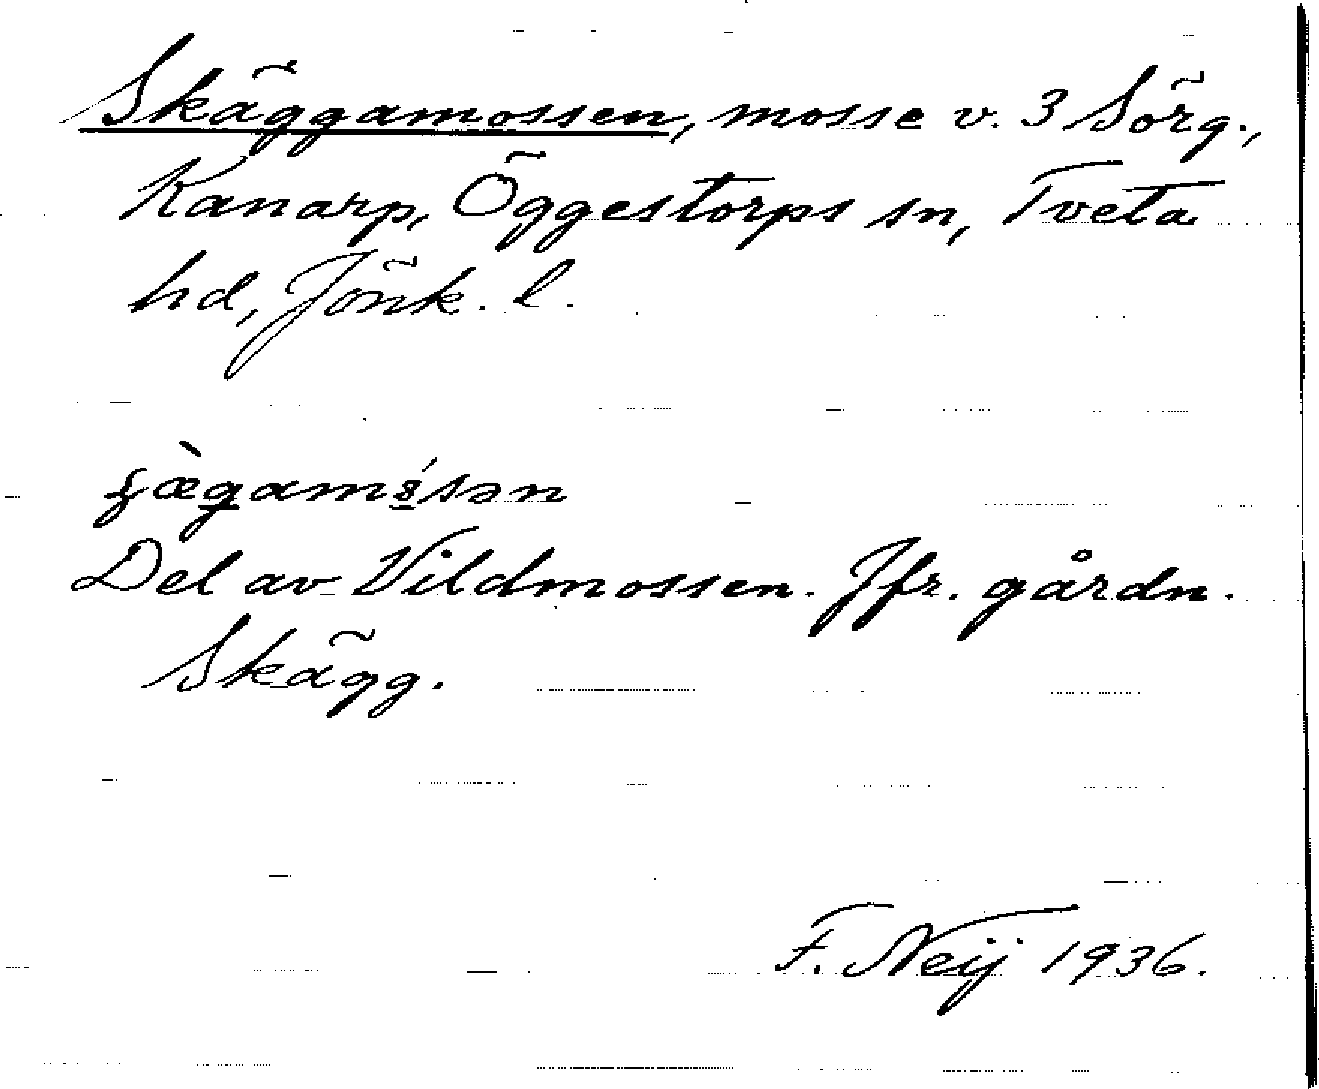 Skäggamossen, mosse v. 3 Sörg.,
Kanarp, Öggestorps sn, Tveta
hd, Jönk. l.
Del av Vildmossen. Jfr. gårdn.
Skägg.
F. Neij 1936.